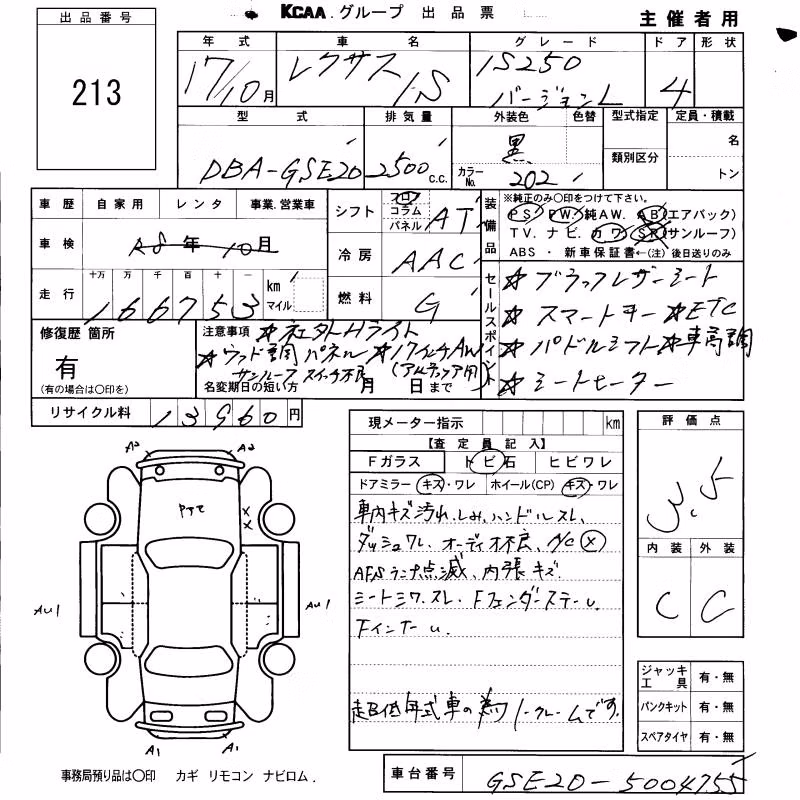 KCAA.グループ 出品票
主催者用
出品番号
213
年式 車名 グレード ドア 形状
17/10月 レクサス IS IS250 バージョンL 4
型式 排気量 外装色 色替 型式指定 定員・積載
DBA-GSE20 2500 c.c. 黒 カラーNo. 202 類別区分 名 トン
車歴 自家用 レンタ 事業.営業車
シフト フロア コラム パネル AT
装備品 ※純正のみ○印をつけて下さい。
PS PW 純AW. AB(エアバック)
TV. ナビ. カワ SR(サンルーフ)
ABS ・ 新車保証書←(注)後日送りのみ
車検 28年10月
冷房 AAC
走行 十万 万 千 百 十 一 km マイル
166753
燃料 G
セールスポイント
☆ブラックレザーシート
☆スマートキー ☆ETC
☆パドルシフト ☆車高調
☆シートヒーター
修復歴 箇所
有
(有の場合は○印を)
注意事項 ☆社外Hライト
☆ウッド調パネル ☆17インチAW
サンルーフスイッチ不良
名変期日の短い方 月 日まで
リサイクル料 13960円
現メーター指示 km
【査定員記入】
Fガラス トビ石 ヒビワレ
ドアミラー キズ・ワレ ホイール(CP) キズ・ワレ
車内キズ汚れ、しみ、ハンドルスレ、
ダッシュワレ、オーディオ不良、A/C ×
AFSランプ点滅、内張キズ.
シートシワ、スレ、FフェンダーステーU.
FインナーU.
超低年式車の為ノークレームです。
評価点
3.5
内装 外装
C C
A2 A2
AU1 AU1
A1 A1
ジャッキ 工具 有・無
パンクキット 有・無
スペアタイヤ 有・無
事務局預り品は○印 カギ リモコン ナビロム.
車台番号 GSE20-5004755